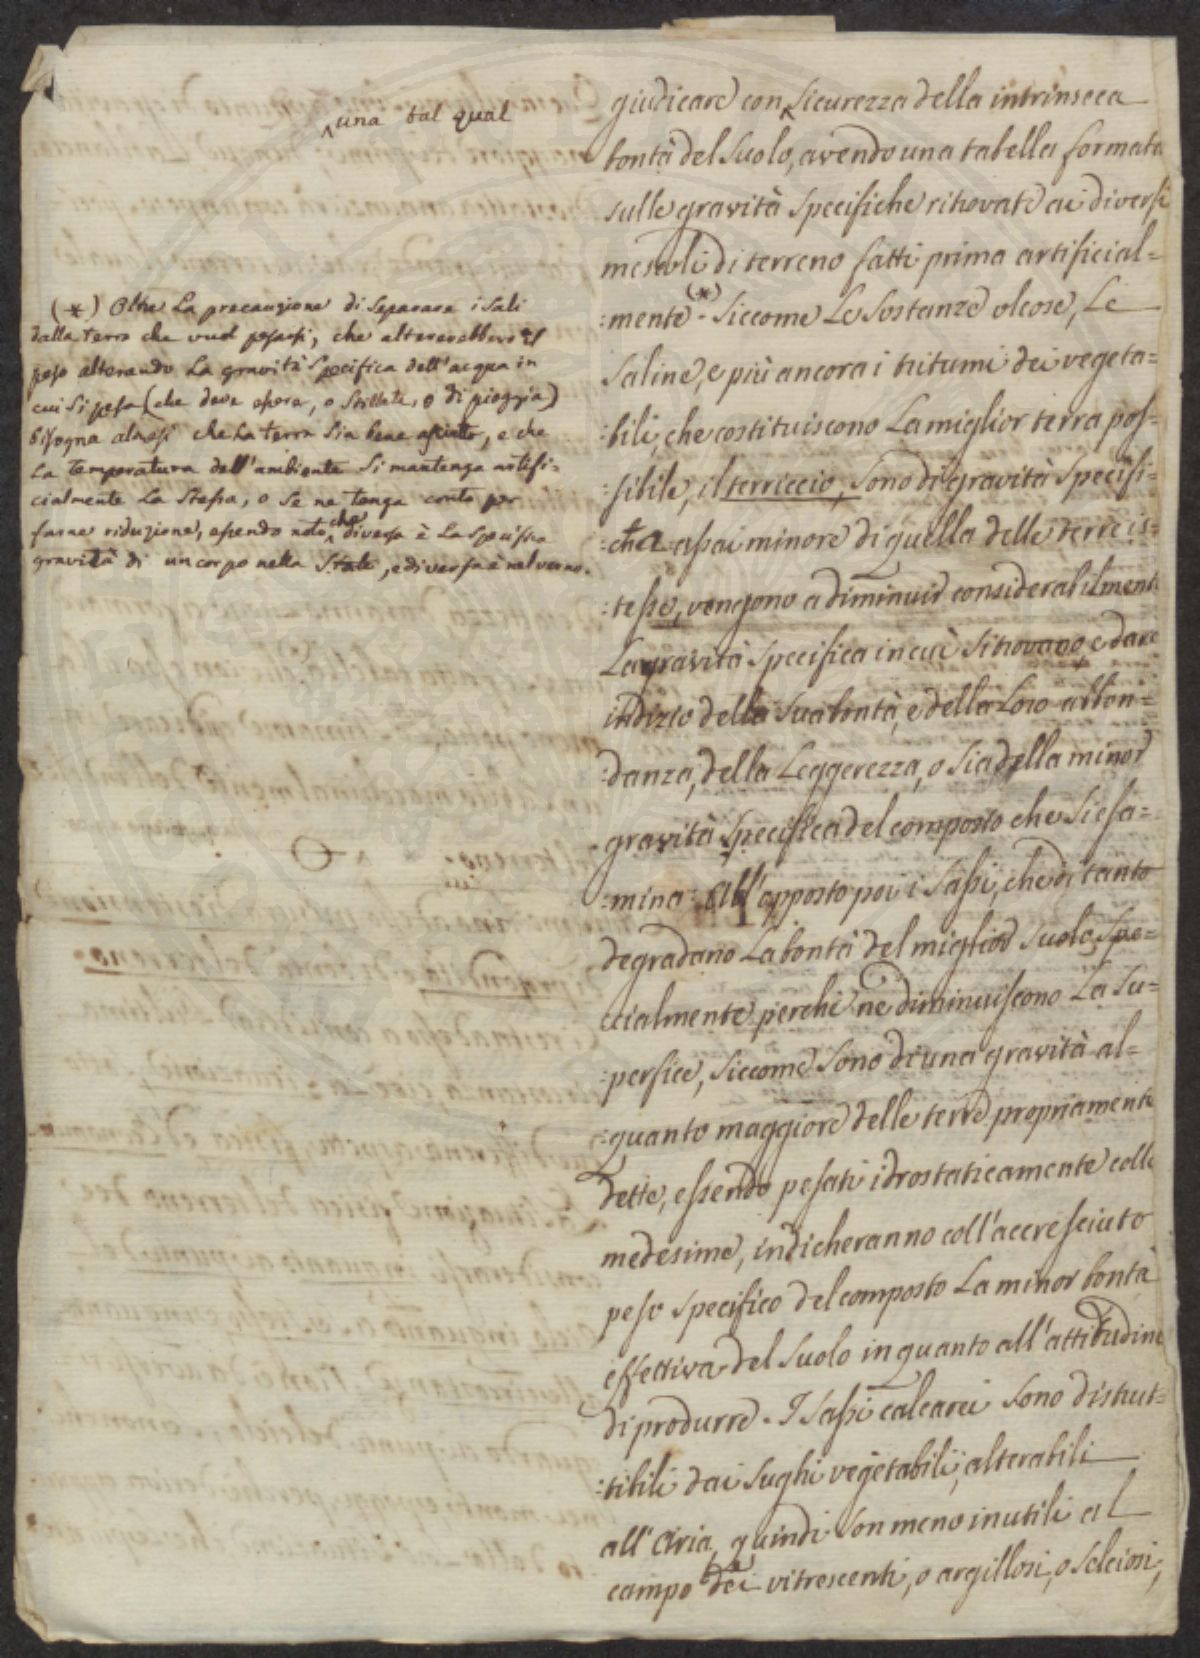 ^una tal qual
(*) Oltre La precauzione di Separare i Sali
dalla terra che vuol pesarsi, che altererebbero il
peso alterando La gravità Specifica dell'acqua in
cui si pesa (che deve essere, o Stillata, o di pioggia)
bisogna altresì che La terra Sia bene asciutta, e che
La temperatura dell'ambiente Si mantenga artifi-
cialmente La Stessa, o Se ne tenga conto per
farne riduzione, essendo noto che diversa è La Specifica
gravità di un corpo nella State, e diversa è nel verno.
giudicare con ^ Sicurezza della intrinseca
bontà del Suolo, avendo una tabella formata
sulle gravità Specifiche ritrovate ai diversi
mescoli di terreno fatti prima artificial=
:mente (*). Siccome Le Sostanze oleose, Le
Saline, e più ancora i tritumi dei vegeta=
:bili, che costituiscono La miglior terra pos=
:sibile, il terriccio, Sono di gravità Specifi=
:ca assai minore di quella delle terre is=
:tesse, vengono a diminuir considerabilmente
La gravità Specifica in cui Si trovano e dare
indizio della Sua bontà, e della Loro abbon=
:danza, della Leggerezza, o Sia della minor
gravità Specifica del composto che Si esa=
:mina. All'opposto poi i Sassi, che di tanto
degradano La bontà del miglior Suolo, Spe=
cialmente perchè ne diminuiscono La Su=
:perfice, Siccome Sono di una gravità al=
:quanto maggiore delle terre propriamente
dette, essendo pesati idrostaticamente colle
medesime, indicheranno coll'accresciuto
peso Specifico del composto La minor bontà
effettiva del Suolo in quanto all'attitudine
di produrre. I Sassi calcarei Sono distrut=
:tibili dai Sughi vegetabili, alterabili
all'Aria, quindi Son meno inutili al
campo dei vitrescenti, o argillosi, o Selciosi,